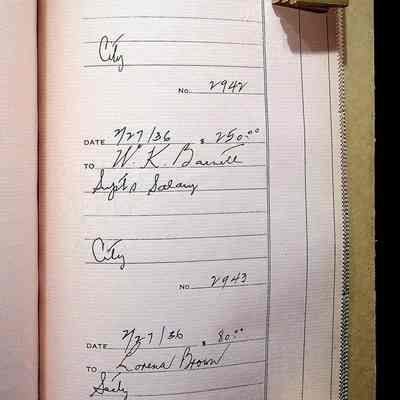 City
No. 2942
DATE 2/27/36 $ 250.00
TO W. K. Barnett
Supt's Salary
City
No 2943
DATE 2/27/36 $ 80.00
TO Lorena Brown
Secty